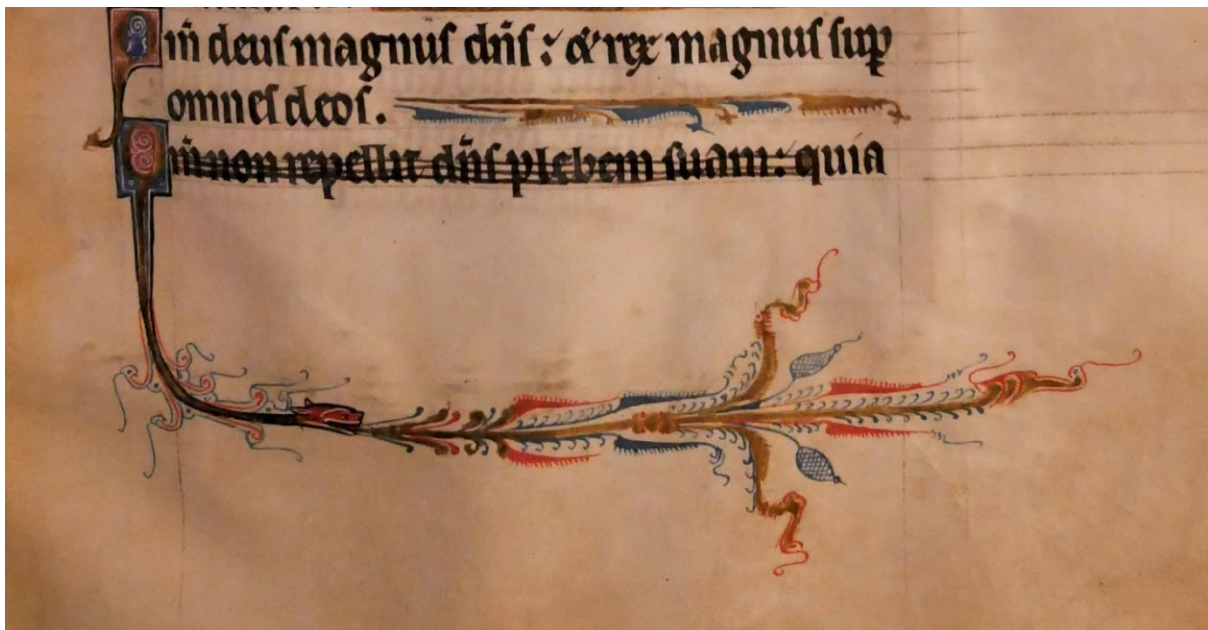 Qm̄ deuſ magnuſ dn̄ſ : & rex magnuſ ſuꝑ
omneſ deoſ.
Qm̄ non repellit dn̄ſ plebem ſuam : quia